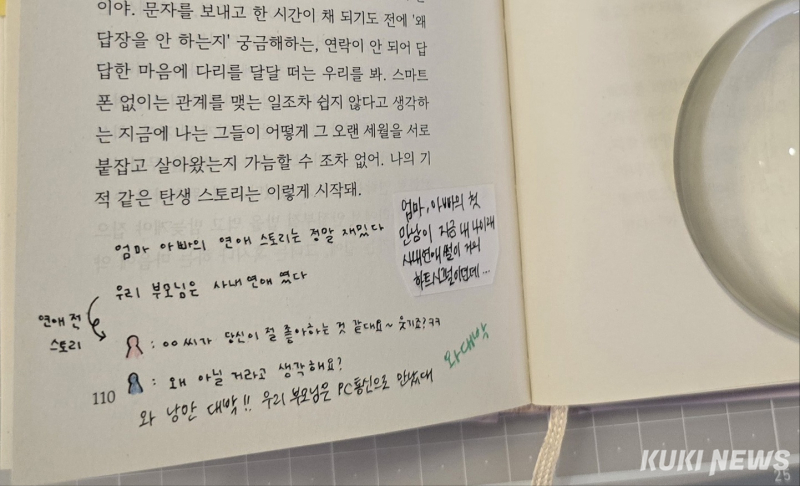 이야. 문자를 보내고 한 시간이 채 되기도 전에 '왜
답장을 안 하는지' 궁금해하는, 연락이 안 되어 답
답한 마음에 다리를 달달 떠는 우리를 봐. 스마트
폰 없이는 관계를 맺는 일조차 쉽지 않다고 생각하
는 지금에 나는 그들이 어떻게 그 오랜 세월을 서로
붙잡고 살아왔는지 가늠할 수 조차 없어. 나의 기
적 같은 탄생 스토리는 이렇게 시작돼.
엄마, 아빠의 첫
만남이 지금 내 나이래
사내연애썰이 거의
하트시그널이던데...
엄마 아빠의 연애 스토리는 정말 재밌다
우리 부모님은 사내 연애 였다
연애 전
스토리
: ㅇㅇ씨가 당신이 절 좋아하는 것 같대요~ 웃기죠? ㅋㅋ
: 왜 아닐 거라고 생각해요?
와 대박
와 낭만 대박!! 우리 부모님은 PC통신으로 만났대
110
KUKI NEWS
25